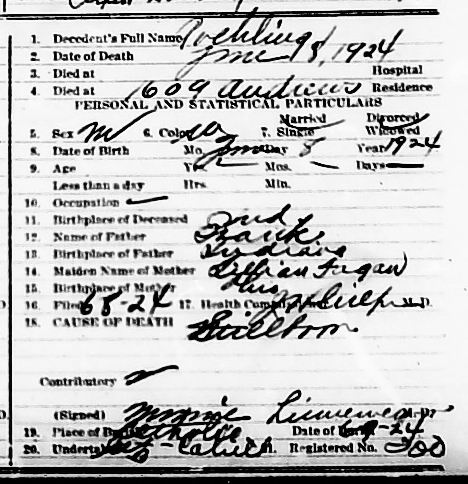 1. Decedent's Full Name Roehling
2. Date of Death June 8, 1924
3. Died at Hospital
4. Died at 1609 Andrews Residence
PERSONAL AND STATISTICAL PARTICULARS
Married Divorced
5. Sex M 6. Color W 7. Single Widowed
8. Date of Birth Mo. June Day 8 Year 1924
9. Age Yr. — Mos. — Days —
Less than a day Hrs. Min.
10. Occupation —
11. Birthplace of Deceased Ind
12. Name of Father Frank
13. Birthplace of Father Indiana
14. Maiden Name of Mother Lillian Fagan
15. Birthplace of Mother
16. Filed 6-8-24 17. Health M.D.
18. CAUSE OF DEATH Stillborn
Contributory
(Signed) Minnie
19. Place of Catholic Date of -24
20. Registered No. 200